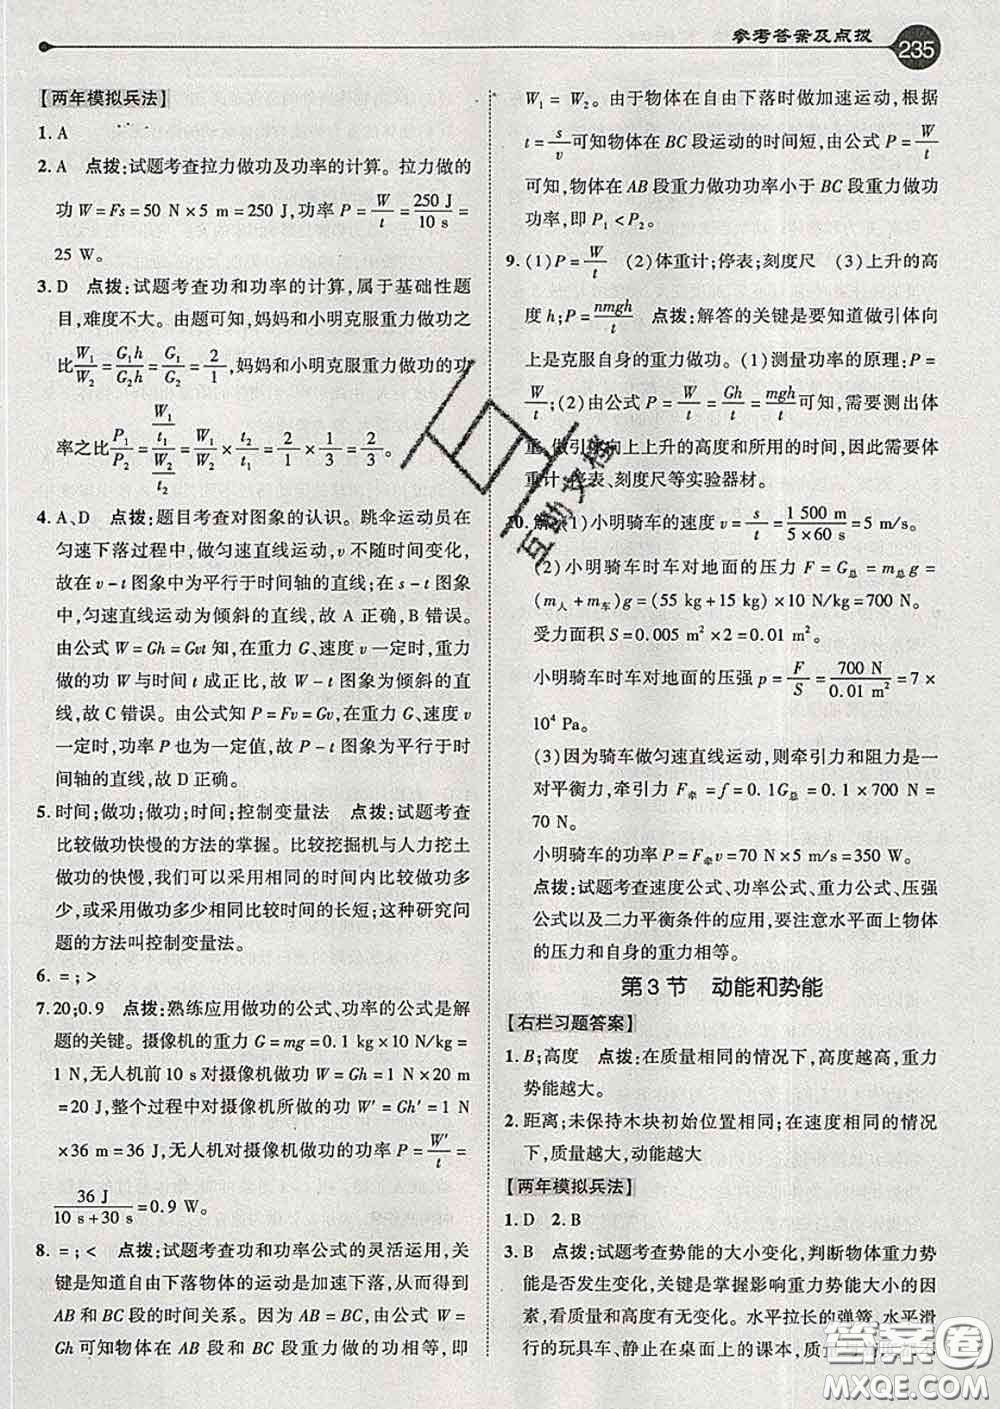 参考答案及点拨
235
【两年模拟兵法】
1. A
2. A　点拨:试题考查拉力做功及功率的计算。拉力做的
功 W = Fs = 50 N × 5 m = 250 J,功率 P = W/t = 250 J/10 s =
25 W。
3. D　点拨:试题考查功和功率的计算,属于基础性题
目,难度不大。由题可知,妈妈和小明克服重力做功之
比 W₁/W₂ = G₁h/G₂h = G₁/G₂ = 2/1,妈妈和小明克服重力做功的功
率之比 P₁/P₂ = (W₁/t₁)/(W₂/t₂) = W₁/W₂ × t₂/t₁ = 2/1 × 1/3 = 2/3。
4. A、D　点拨:题目考查对图象的认识。跳伞运动员在
匀速下落过程中,做匀速直线运动,v 不随时间变化,
故在 v - t 图象中为平行于时间轴的直线;在 s - t 图象
中,匀速直线运动为倾斜的直线,故 A 正确,B 错误。
由公式 W = Gh = Gvt 知,在重力 G、速度 v 一定时,重力
做的功 W 与时间 t 成正比,故 W - t 图象为倾斜的直
线,故 C 错误。由公式知 P = Fv = Gv,在重力 G、速度 v
一定时,功率 P 也为一定值,故 P - t 图象为平行于时
间轴的直线,故 D 正确。
5. 时间;做功;做功;时间;控制变量法　点拨:试题考查
比较做功快慢的方法的掌握。比较挖掘机与人力挖土
做功的快慢,我们可以采用相同的时间内比较做功多
少,或采用做功多少相同比较时间的长短;这种研究问
题的方法叫控制变量法。
6. = ; >
7. 20;0.9　点拨:熟练应用做功的公式、功率的公式是解
题的关键。摄像机的重力 G = mg = 0.1 kg × 10 N/kg =
1 N,无人机前 10 s 对摄像机做功 W = Gh = 1 N × 20 m
= 20 J,整个过程中对摄像机所做的功 W′ = Gh′ = 1 N
× 36 m = 36 J,无人机对摄像机做功的功率 P = W′/t =
36 J/(10 s + 30 s) = 0.9 W。
8. = ; <　点拨:试题考查功和功率公式的灵活运用,关
键是知道自由下落物体的运动是加速下落,从而得到
AB 和 BC 段的时间关系。因为 AB = BC,由公式 W =
Gh 可知物体在 AB 段和 BC 段重力做功的功相等,即
W₁ = W₂。由于物体在自由下落时做加速运动,根据
t = s/v 可知物体在 BC 段运动的时间短,由公式 P = W/t
可知,物体在 AB 段重力做功功率小于 BC 段重力做功
功率,即 P₁ < P₂。
9. (1) P = W/t　(2)体重计;停表;刻度尺　(3)上升的高
度 h;P = nmgh/t　点拨:解答的关键是要知道做引体向
上是克服自身的重力做功。(1)测量功率的原理:P =
W/t;(2)由公式 P = W/t = Gh/t = mgh/t 可知,需要测出体
重、做引体向上上升的高度和所用的时间,因此需要体
重计、停表、刻度尺等实验器材。
10. 解:(1)小明骑车的速度 v = s/t = 1 500 m/(5 × 60 s) = 5 m/s。
(2)小明骑车时车对地面的压力 F = G总 = m总g =
(m人 + m车)g = (55 kg + 15 kg) × 10 N/kg = 700 N。
受力面积 S = 0.005 m² × 2 = 0.01 m²。
小明骑车时车对地面的压强 p = F/S = 700 N/0.01 m² = 7 ×
10⁴ Pa。
(3)因为骑车做匀速直线运动,则牵引力和阻力是一
对平衡力,牵引力 F牵 = f = 0.1G总 = 0.1 × 700 N =
70 N。
小明骑车的功率 P = F牵v = 70 N × 5 m/s = 350 W。
点拨:试题考查速度公式、功率公式、重力公式、压强
公式以及二力平衡条件的应用,要注意水平面上物体
的压力和自身的重力相等。
第 3 节　动能和势能
【右栏习题答案】
1. B;高度　点拨:在质量相同的情况下,高度越高,重力
势能越大。
2. 距离;未保持木块初始位置相同;在速度相同的情况
下,质量越大,动能越大
【两年模拟兵法】
1. D　2. B
3. B　点拨:试题考查势能的大小变化,判断物体重力势
能是否发生变化,关键是掌握影响重力势能大小的因
素,看质量和高度有无变化。水平拉长的弹簧、水平滑
行的玩具车、静止在桌面上的课本,质量
互助文档
答案圈
MXQE.COM